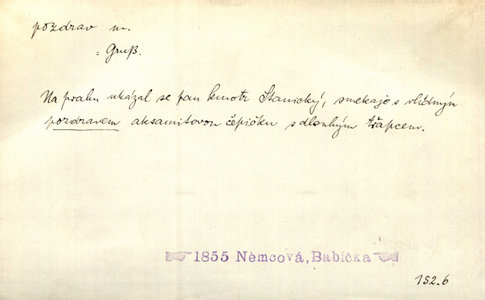 pozdrav m.
= Gruß.
Na prahu ukázal se pan kmotr Stanický, smekaje s vlídným
pozdravem aksamitovou čepičku s dlouhým třapcem.
1855 Němcová, Babička
152.6